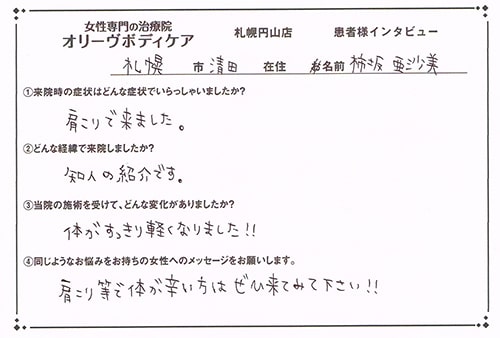 女性専門の治療院
オリーヴボディケア 札幌円山店 患者様インタビュー
札幌 市 清田 在住 お名前 柿坂 亜沙美
①来院時の症状はどんな症状でいらっしゃいましたか?
肩こりで来ました。
②どんな経緯で来院しましたか?
知人の紹介です。
③当院の施術を受けて、どんな変化がありましたか?
体がすっきり軽くなりました!!
④同じようなお悩みをお持ちの女性へのメッセージをお願いします。
肩こり等で体が辛い方はぜひ来てみて下さい!!